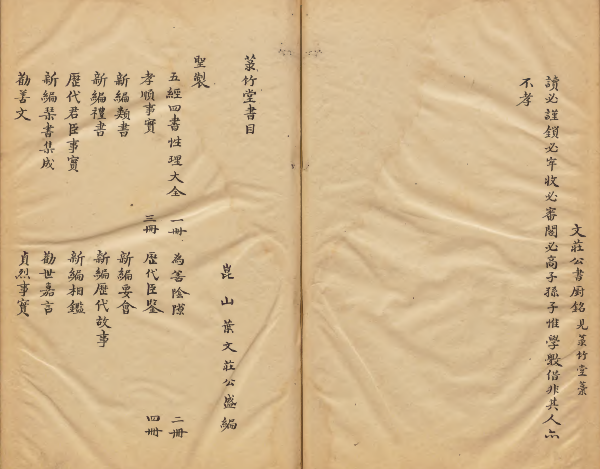 文莊公書廚銘 見菉竹堂藁
讀必謹鎖必牢收必審閣必高子孫子惟學斅借非其人亦
不孝
菉竹堂書目
崑山葉文莊公盛編
聖製
五經四書性理大全 一冊 為善陰隲 二冊
孝順事實 三冊 歷代臣鑒 四冊
新編類書 新編要會
新編禮書 新編歷代故事
歷代君臣事實 新編相鑑
新編琹書集成 勸世嘉言
勸善文 貞烈事實